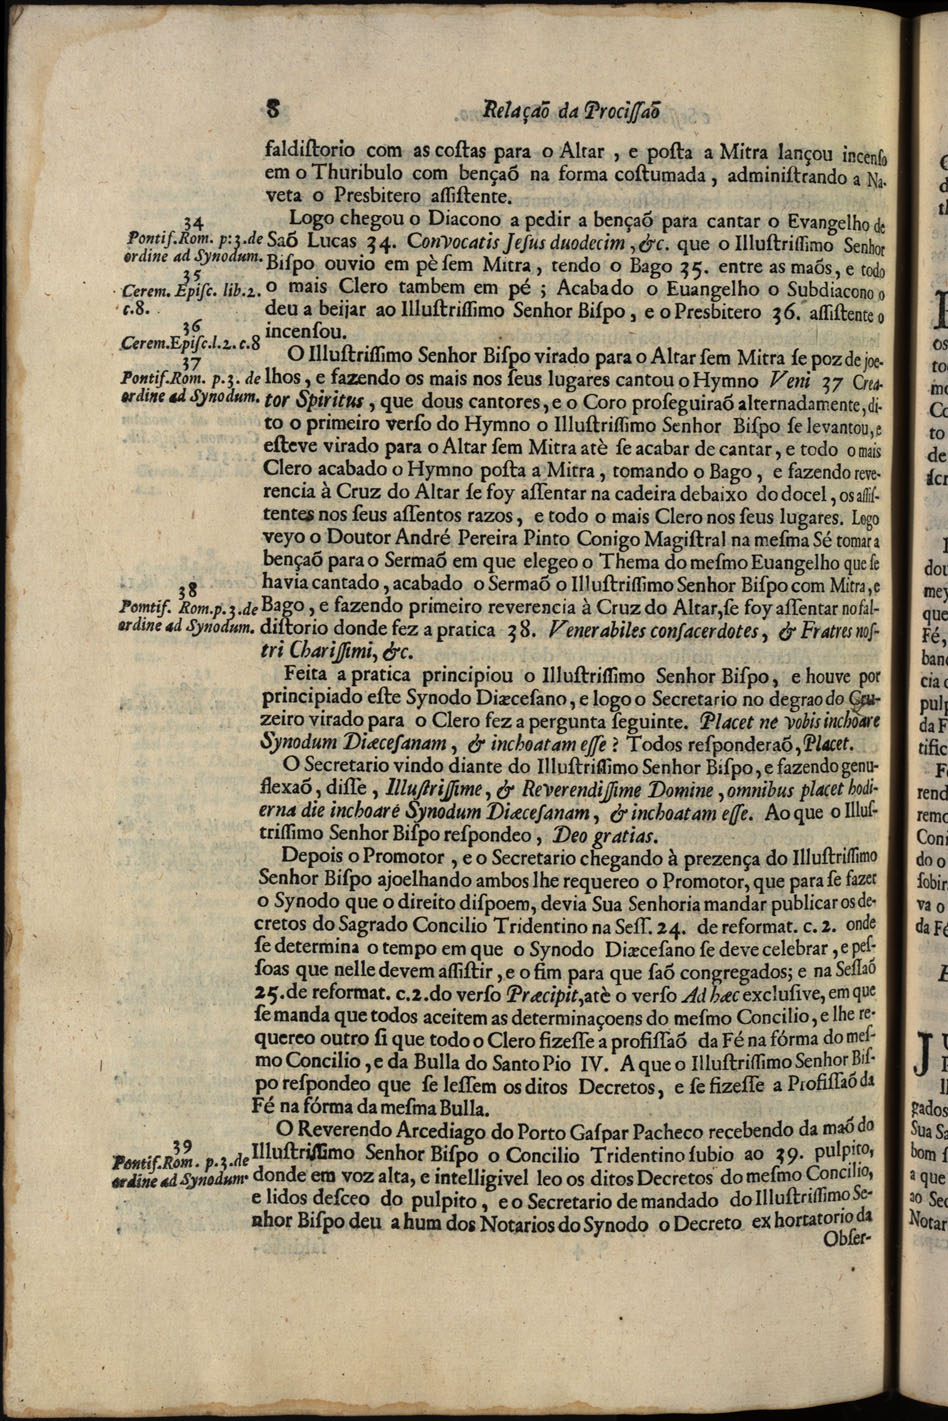 8 Relaçaõ da Prociſſaõ
faldiſtorio com as coſtas para o Altar , e poſta a Mitra lançou incenſo
em o Thuribulo com bençaõ na forma coſtumada , adminiſtrando a Na-
veta o Presbitero aſſiſtente.
Logo chegou o Diacono a pedir a bençaõ para cantar o Evangelho de
Saõ Lucas 34. Convocatis Jeſus duodecim , &c. que o Illuſtriſſimo Senhor
Biſpo ouvio em pè ſem Mitra , tendo o Bago 35. entre as maõs, e todo
o mais Clero tambem em pé ; Acabado o Euangelho o Subdiacono o
deu a beijar ao Illuſtriſſimo Senhor Biſpo , e o Presbitero 36. aſſiſtente o
incenſou.
O Illuſtriſſimo Senhor Biſpo virado para o Altar ſem Mitra ſe poz de joe-
lhos , e fazendo os mais nos ſeus lugares cantou o Hymno Veni 37 Crea-
tor Spiritus , que dous cantores, e o Coro proſeguiraõ alternadamente, di-
to o primeiro verſo do Hymno o Illuſtriſſimo Senhor Biſpo ſe levantou, e
eſteve virado para o Altar ſem Mitra atè ſe acabar de cantar , e todo o mais
Clero acabado o Hymno poſta a Mitra , tomando o Bago , e fazendo reve-
rencia à Cruz do Altar ſe foy aſſentar na cadeira debaixo do docel , os aſſiſ-
tentes nos ſeus aſſentos razos , e todo o mais Clero nos ſeus lugares. Logo
veyo o Doutor André Pereira Pinto Conigo Magiſtral na meſma Sé tomar a
bençaõ para o Sermaõ em que elegeo o Thema do meſmo Euangelho que ſe
havia cantado , acabado o Sermaõ o Illuſtriſſimo Senhor Biſpo com Mitra , e
Bago , e fazendo primeiro reverencia à Cruz do Altar, ſe foy aſſentar no fal-
diſtorio donde fez a pratica 38. Venerabiles conſacerdotes , & Fratres noſ-
tri Chariſſimi, &c.
Feita a pratica principiou o Illuſtriſſimo Senhor Biſpo , e houve por
principiado eſte Synodo Diæceſano , e logo o Secretario no degrao do Cru-
zeiro virado para o Clero fez a pergunta ſeguinte. Placet ne vobis inchoare
Synodum Diæceſanam , & inchoatam eſſe ? Todos reſponderaõ, Placet.
O Secretario vindo diante do Illuſtriſſimo Senhor Biſpo, e fazendo genu-
flexaõ , diſſe , Illuſtriſſime , & Reverendiſſime Domine , omnibus placet hodi-
erna die inchoaré Synodum Diæceſanam , & inchoatam eſſe. Ao que o Illuſ-
triſſimo Senhor Biſpo reſpondeo , Deo gratias.
Depois o Promotor , e o Secretario chegando à prezença do Illuſtriſſimo
Senhor Biſpo ajoelhando ambos lhe requereo o Promotor, que para ſe fazer
o Synodo que o direito diſpoem, devia Sua Senhoria mandar publicar os de-
cretos do Sagrado Concilio Tridentino na Seſſ. 24. de reformat. c. 2. onde
ſe determina o tempo em que o Synodo Diæceſano ſe deve celebrar , e peſ-
ſoas que nelle devem aſſiſtir , e o fim para que ſaõ congregados; e na Seſſaõ
25. de reformat. c. 2. do verſo Præcipit, atè o verſo Ad hæc excluſive, em que
ſe manda que todos aceitem as determinaçoens do meſmo Concilio, e lhe re-
quereo outro ſi que todo o Clero fizeſſe a profiſſaõ da Fé na fórma do meſ-
mo Concilio , e da Bulla do Santo Pio IV. A que o Illuſtriſſimo Senhor Biſ-
po reſpondeo que ſe leſſem os ditos Decretos, e ſe fizeſſe a Profiſſaõ da
Fé na fórma da meſma Bulla.
O Reverendo Arcediago do Porto Gaſpar Pacheco recebendo da maõ do
Illuſtriſſimo Senhor Biſpo o Concilio Tridentino ſubio ao 39. pulpito,
donde em voz alta, e intelligivel leo os ditos Decretos do meſmo Concilio,
e lidos deſceo do pulpito , e o Secretario de mandado do Illuſtriſſimo Se-
nhor Biſpo deu a hum dos Notarios do Synodo o Decreto exhortatorio da
Obſer-
34
Pontif. Rom. p: 3. de
ordine ad Synodum.
35
Cerem. Epiſc. lib. 2.
c. 8.
36
Cerem. Epiſc. l. 2. c. 8
37
Pontif. Rom. p. 3. de
ordine ad Synodum.
38
Pontif. Rom. p. 3. de
ordine ad Synodum.
39
Pontif. Rom. p. 3. de
ordine ad Synodum.